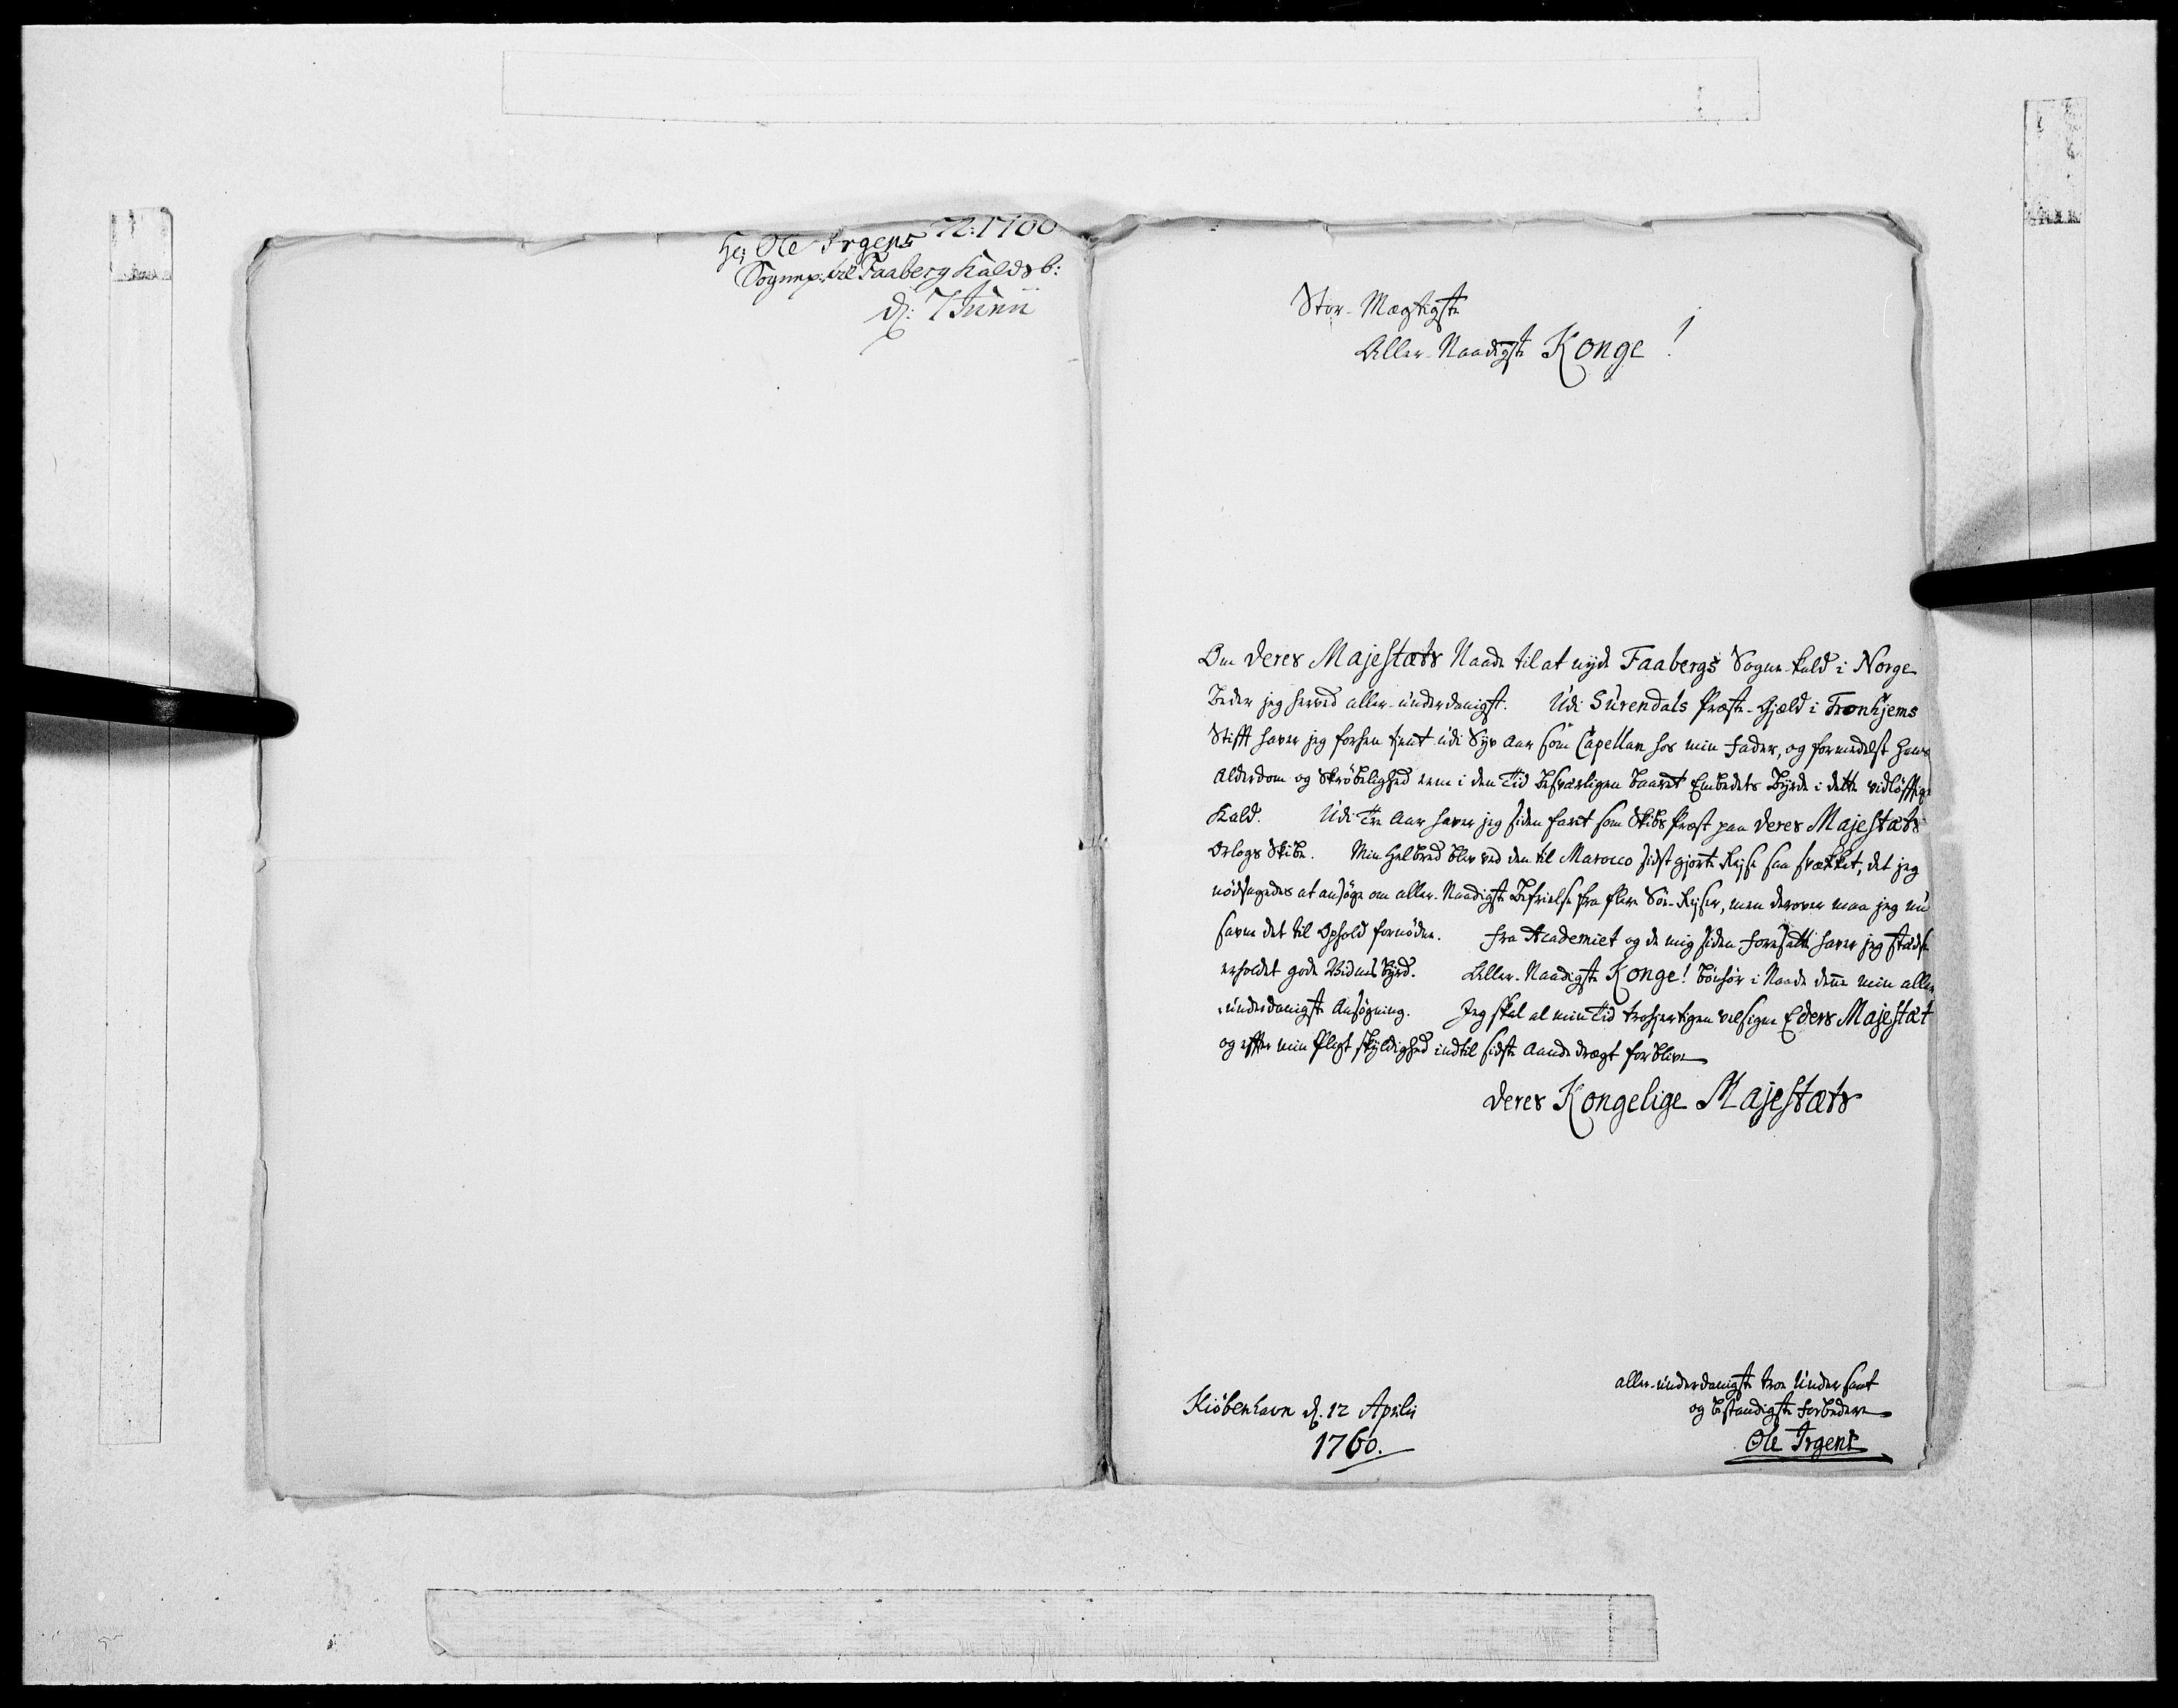 72: 1760
Hr Ole Irgens
Sognep: til Faaberg Kalds b:
d: 7 Junii
Stor-Mægtigste
Aller-Naadigste Konge!
Om Deres Majestæts Naade til at nyde Faabergs Sogne-Kald i Norge
beder jeg herved aller-underdanigst. Udi Surendals Præste-Gjæld i Tronhjems
Stifft haver jeg forhen tjent udi Syv Aar som Capellan hos min Fader, og formedelst hans
Alderdom og Skrøbelighed eene i den Tid besværligen baaret Embedets Byrde i dette vidløfftige
Kald. Udi Tre Aar haver jeg siden faret som Skibs Præst paa Deres Majestæts
Orlogs Skibe. Min Helbred blev ved den til Marocco sidst gjorte Rejse saa svækket, det jeg
nødsagedes at ansøge om aller-Naadigste Befrielse fra flere Søe-Rejser, men derover maa jeg nu
savne det til Ophold fornødne. Fra Academiet og de mig siden foresatte haver jeg stædse
erholdet gode Vidnesbyrd. Aller-Naadigste Konge! bønhør i Naade denne min aller
underdanigste Ansøgning. Jeg skal al min Tid trohjertigen velsigne Eders Majestæt
og effter min Pligt skyldighed indtil sidste Aandedrægt forblive
Deres Kongelige Majestæts
Kiøbenhavn d. 12 Aprilis
1760.
aller-underdanigste troe Undersaat
og bestandigste Forbedere
Ole Irgens